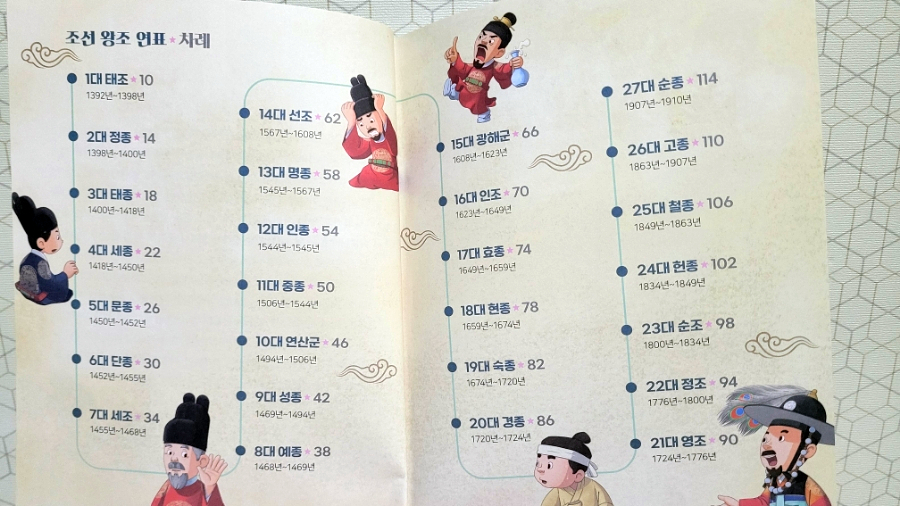 조선 왕조 연표 * 차례
1대 태조 * 10
1392년~1398년
2대 정종 * 14
1398년~1400년
3대 태종 * 18
1400년~1418년
4대 세종 * 22
1418년~1450년
5대 문종 * 26
1450년~1452년
6대 단종 * 30
1452년~1455년
7대 세조 * 34
1455년~1468년
8대 예종 * 38
1468년~1469년
9대 성종 * 42
1469년~1494년
10대 연산군 * 46
1494년~1506년
11대 중종 * 50
1506년~1544년
12대 인종 * 54
1544년~1545년
13대 명종 * 58
1545년~1567년
14대 선조 * 62
1567년~1608년
15대 광해군 * 66
1608년~1623년
16대 인조 * 70
1623년~1649년
17대 효종 * 74
1649년~1659년
18대 현종 * 78
1659년~1674년
19대 숙종 * 82
1674년~1720년
20대 경종 * 86
1720년~1724년
21대 영조 * 90
1724년~1776년
22대 정조 * 94
1776년~1800년
23대 순조 * 98
1800년~1834년
24대 헌종 * 102
1834년~1849년
25대 철종 * 106
1849년~1863년
26대 고종 * 110
1863년~1907년
27대 순종 * 114
1907년~1910년